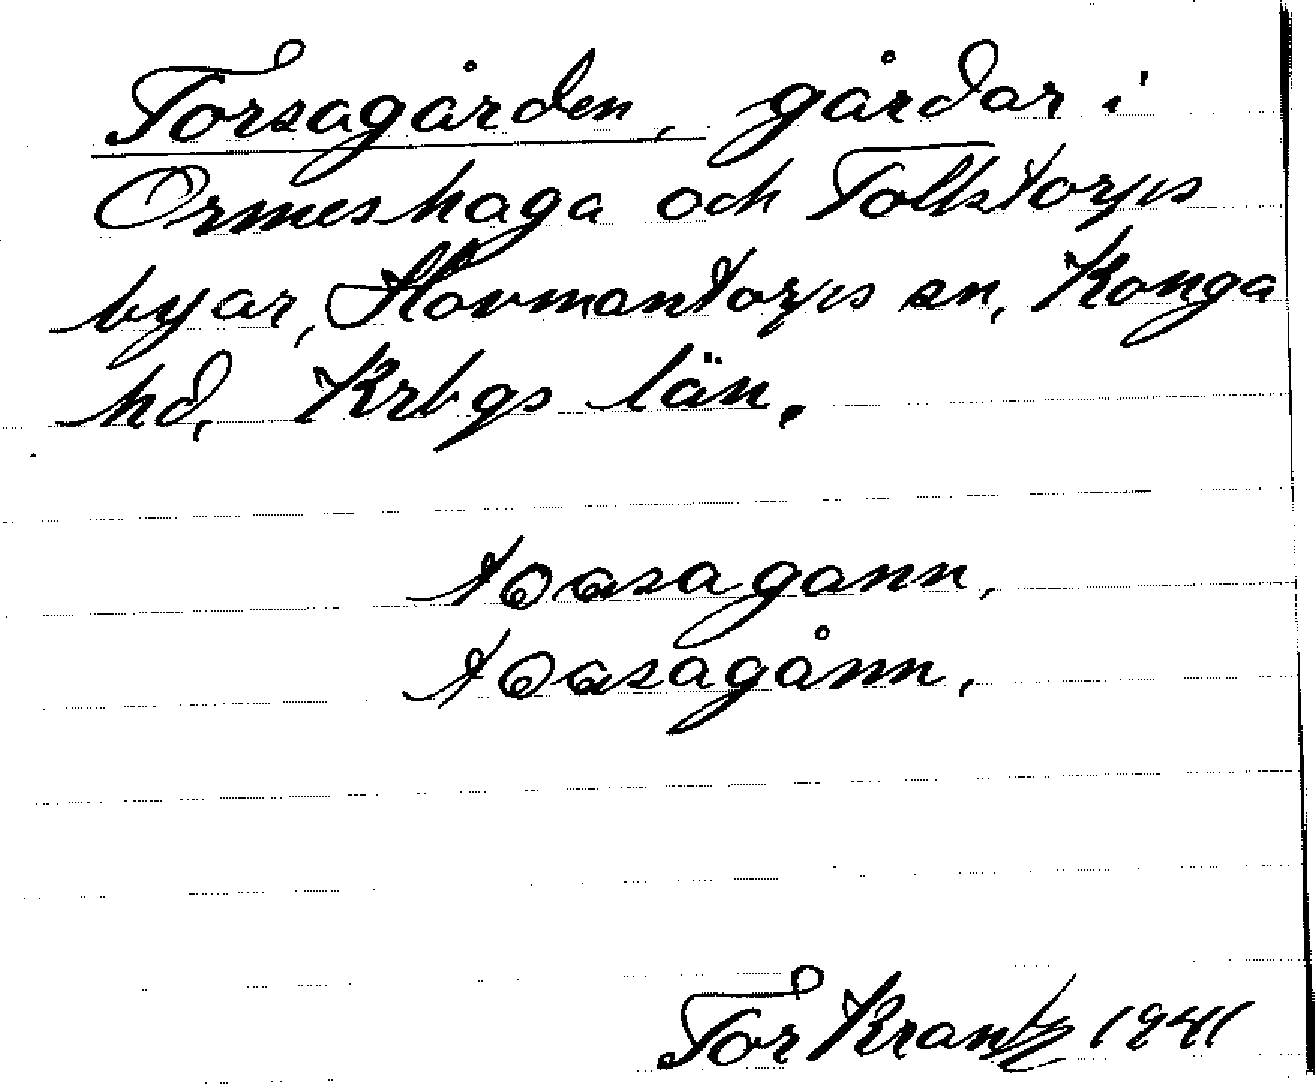 Torsagården, gårdar i
Ormeshaga och Tolkstorps
byar, Hovmantorps sn, Konga
hd, Krbgs län.
toasagann,
toasagånn,
Tor Krantz 1941